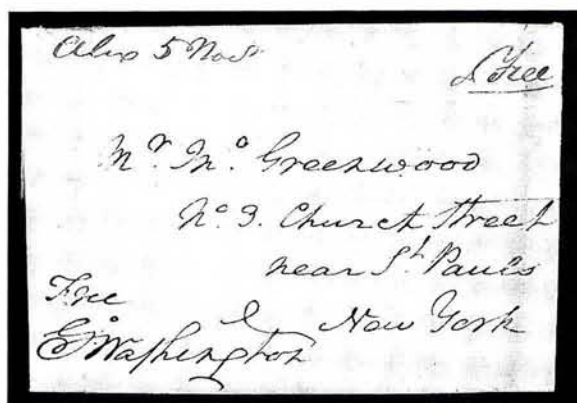 Alexa 5 Novr
Free
Mr. Jno. Greenwood
No. 3. Church Street
near St. Pauls
New York
Free
Go Washington